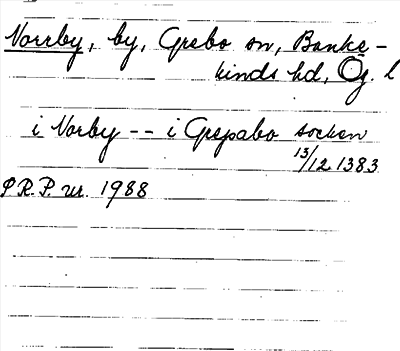 Norrby, by, Grebo sn, Banke-
kinds hd, Ög. l
i Norby -- i Grepabo socken
13/12 1383
S.R.P. nr. 1988